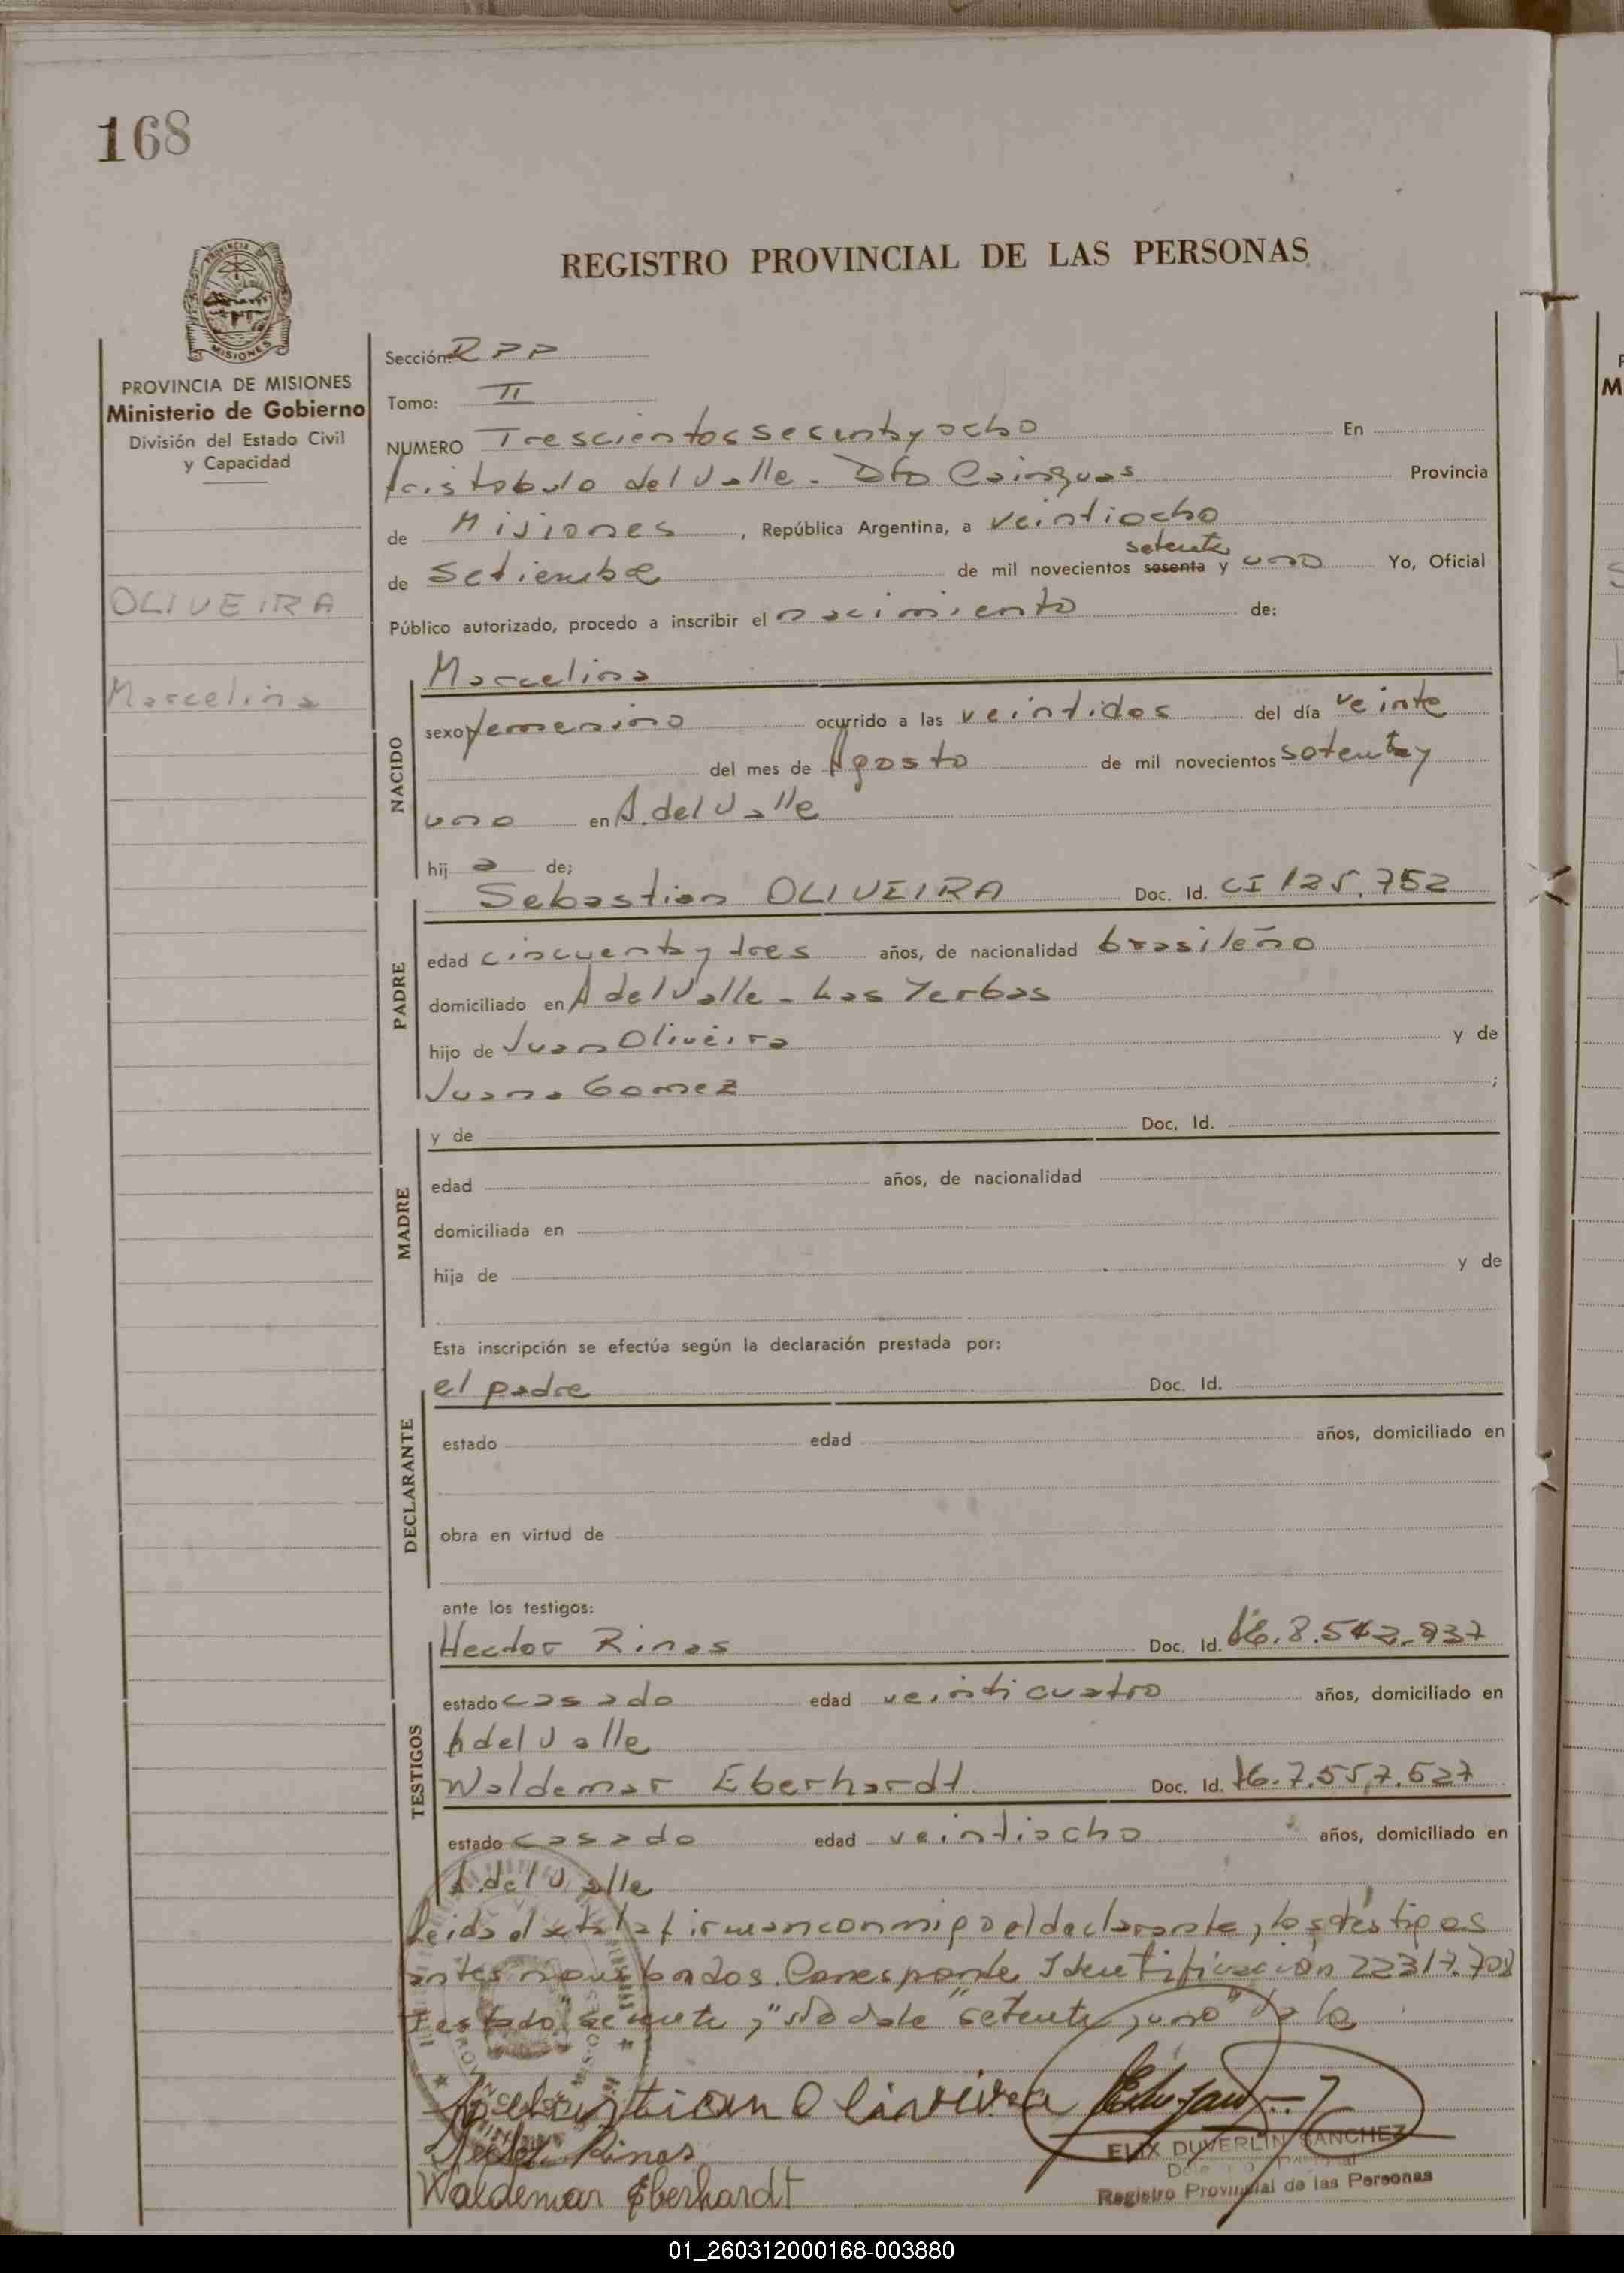 168
PROVINCIA DE MISIONES
REGISTRO PROVINCIAL DE LAS PERSONAS
PROVINCIA DE MISIONES
Ministerio de Gobierno
División del Estado Civil
y Capacidad
OLIVEIRA
Marcelina
Sección: RPP
Tomo: II
NUMERO Trescientos sesenta y ocho En
Aristobulo del Valle - Dto Cainguas Provincia
de Misiones, República Argentina, a veintiocho
setenta
de Setiembre de mil novecientos sesenta y uno Yo, Oficial
Público autorizado, procedo a inscribir el nacimiento de:
NACIDO
Marcelina
sexo femenino ocurrido a las veintidos del día veinte
del mes de Agosto de mil novecientos setenta y
uno en A. del Valle
hij a de;
PADRE
Sebastian OLIVEIRA Doc. Id. CI 125.752
edad cincuenta y tres años, de nacionalidad brasileño
domiciliado en A del Valle - Las Yerbas
hijo de Juan Oliveira y de
Juana Gomez ;
MADRE
y de Doc. Id.
edad años, de nacionalidad
domiciliada en
hija de y de
Esta inscripción se efectúa según la declaración prestada por:
DECLARANTE
el padre Doc. Id.
estado edad años, domiciliado en
obra en virtud de
ante los testigos:
TESTIGOS
Hector Rinas Doc. Id. 8.542.937
estado casado edad veinticuatro años, domiciliado en
A del Valle
Waldemar Eberhardt Doc. Id. 7.557.627
estado casado edad veintiocho años, domiciliado en
A. del Valle
Leida el acta la firman conmigo el declarante y los testigos
antes nombrados. Corresponde Identificación 22317.708
Testado "setenta y uno"
Sebastian Oliveira
Hector Rinas
Waldemar Eberhardt
ELIX DUVERLIN SANCHEZ
Registro Provincial de las Personas
01_260312000168-003880